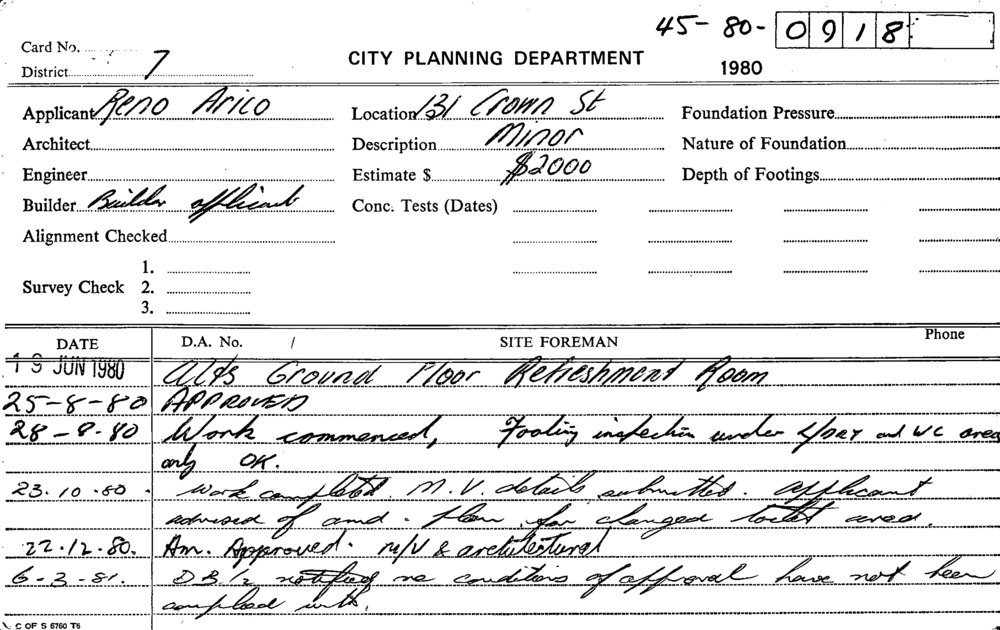 45-80-0918
Card No.
District 7
CITY PLANNING DEPARTMENT
1980
Applicant Reno Arico
Location 131 Crown St
Foundation Pressure
Architect
Description Minor
Nature of Foundation
Engineer
Estimate $ $2000
Depth of Footings
Builder Builder applicant
Conc. Tests (Dates)
Alignment Checked
Survey Check 1.
2.
3.
DATE D.A. No. / SITE FOREMAN Phone
19 JUN 1980 Alts Ground Floor Refreshment Room
25-8-80 APPROVED
28-8-80 Work commenced, Footing inspection under L/DRY and WC area
only OK.
23.10.80. Work completed. M.V. details submitted. Applicant
advised of amd. plan for changed toilet area.
22.12.80. Am. Approved. M/V & architectural
6-3-81. D.B. notified re conditions of approval have not been
complied with.
C OF S 6760 T6